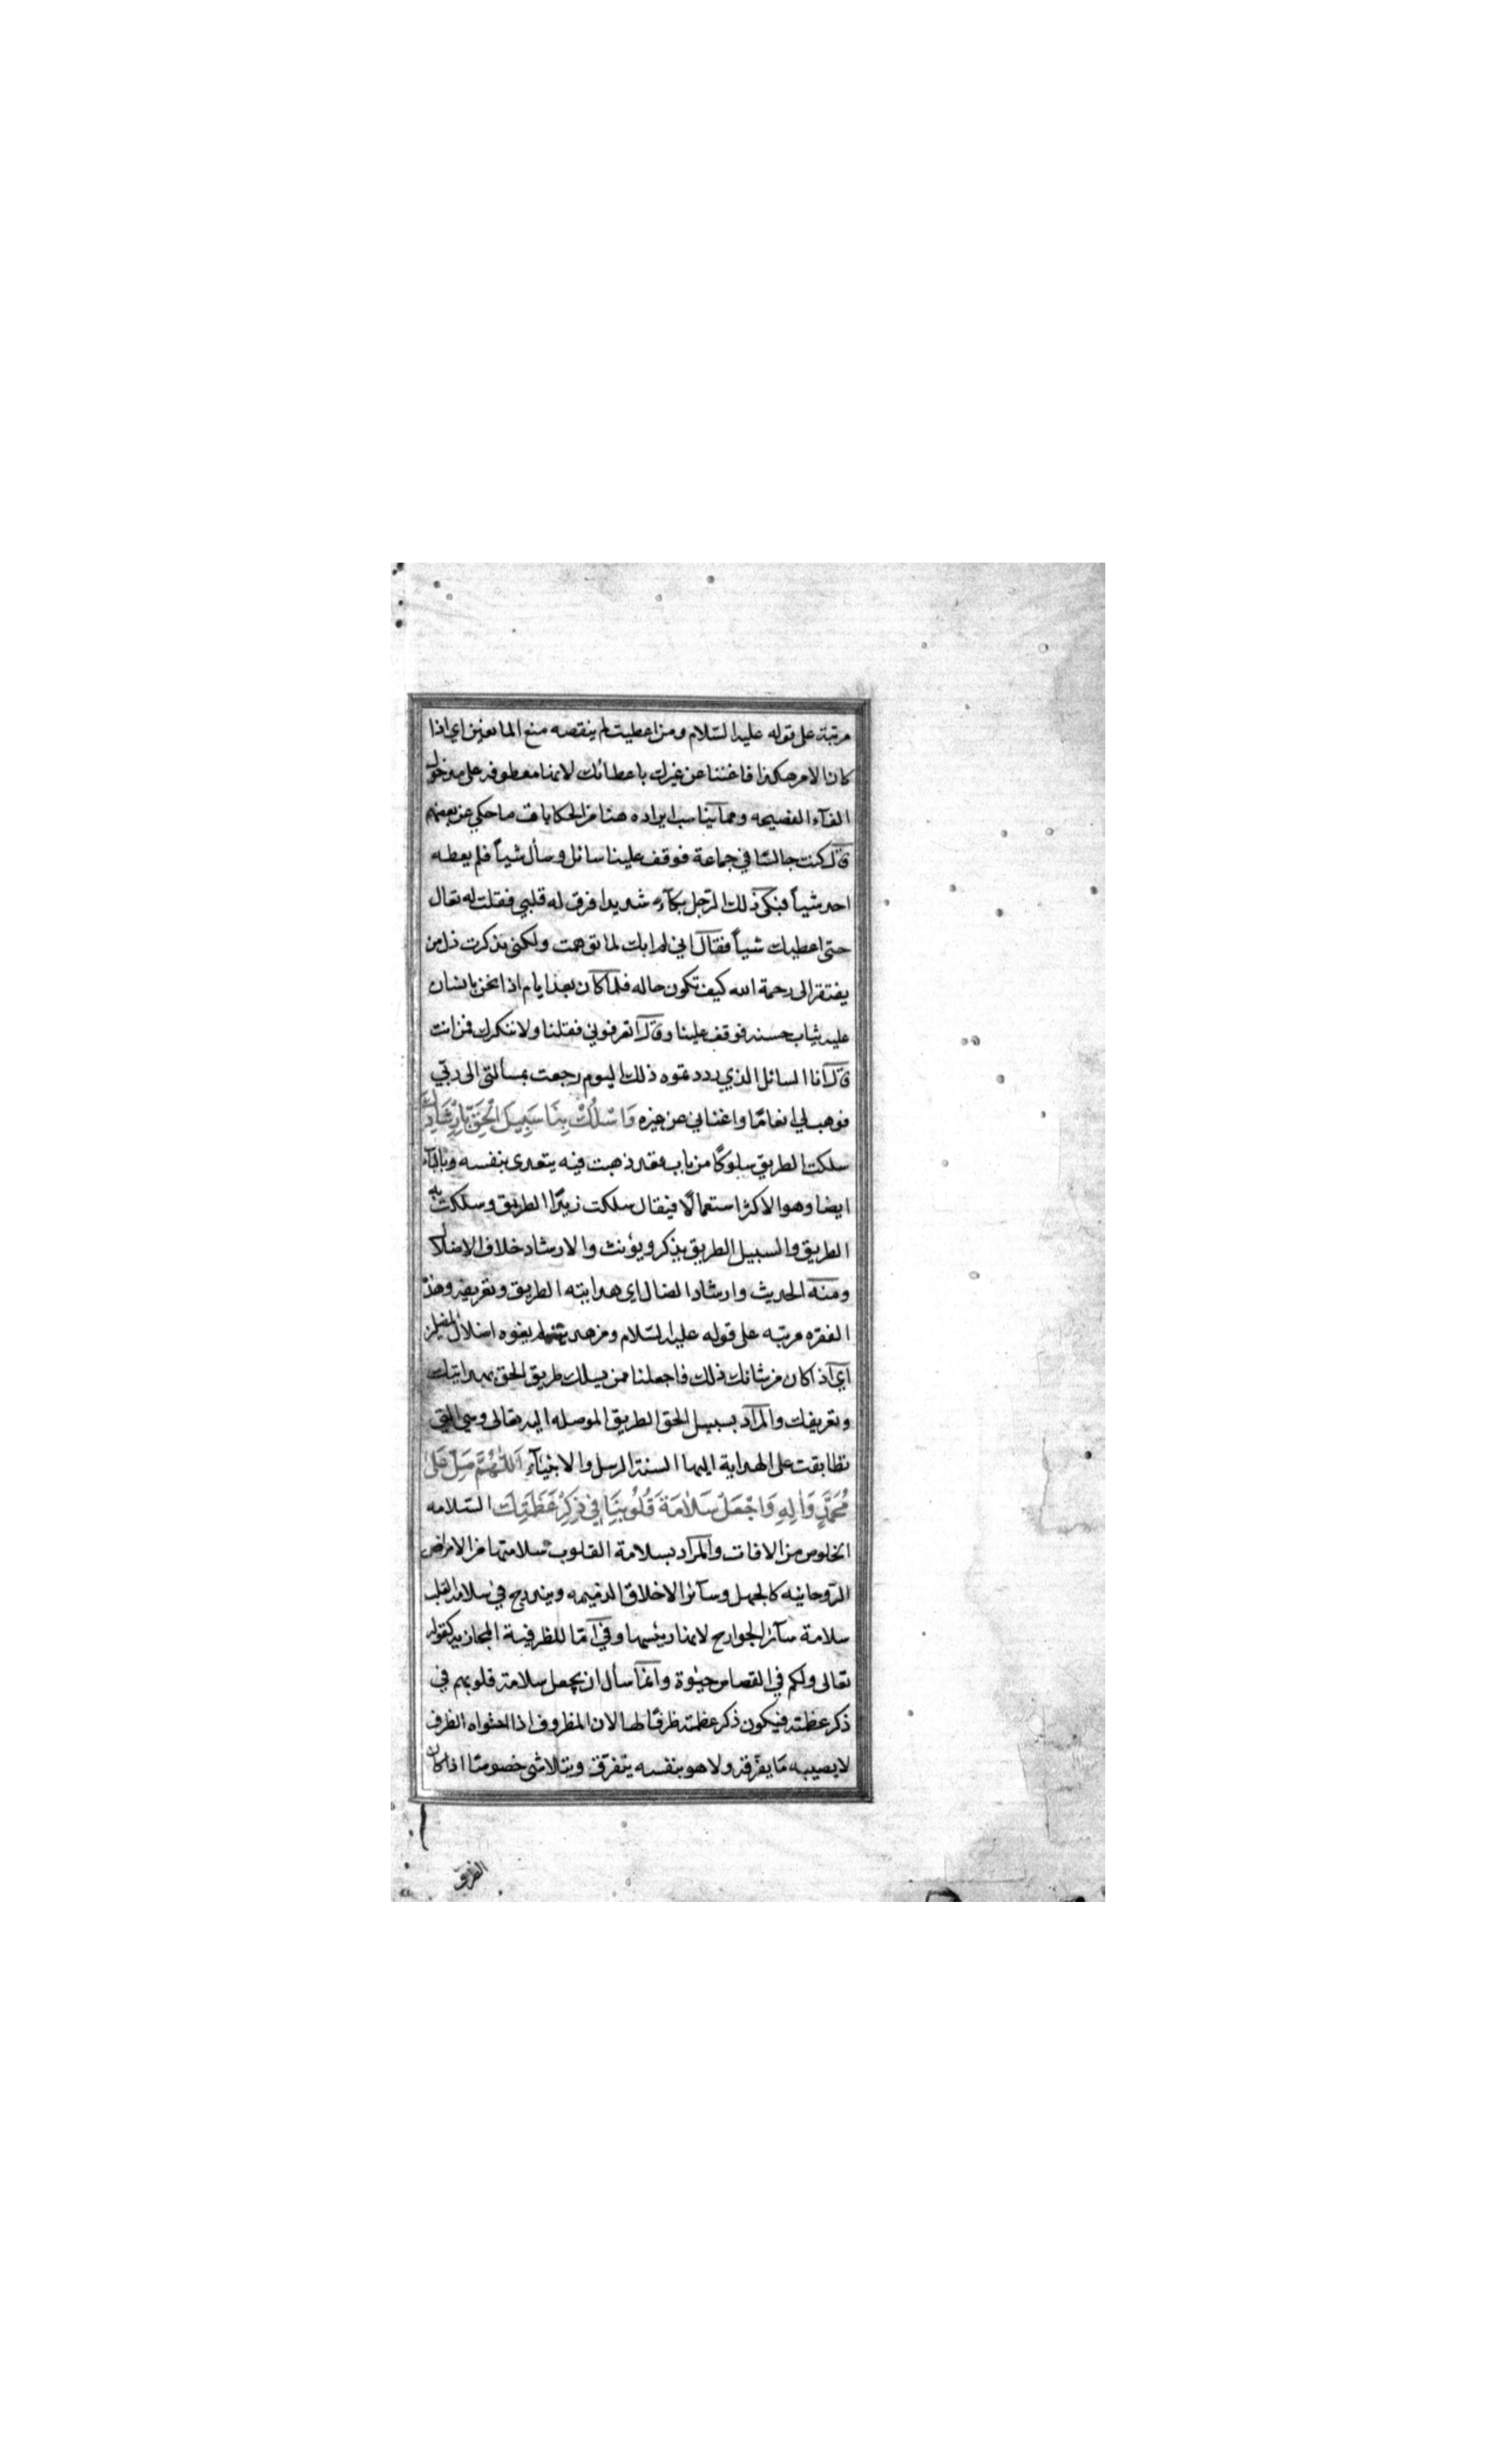 مرتبة على قوله عليه السّلام ومن اعطيت لم ينقصه منع المانعين اي اذا
كان الامر هكذا فاغننا عن غيرك باعطائك لانها معطوفه على مدخول
الفآء الفصيحه وممّا يناسب ايراده هنا من الحكايات ما حكي عن بعضهم
قال كنت جالسًا في جماعة فوقف علينا سائل وسأل شيأً فلم يعطه
احد شيأً فبكى ذلك الرّجل بكآءً شديدا فرق له قلبي فقلت له تعال
حتى اعطيك شيأً فقال اني لم ابك لما توهمت ولكني تذكرت ذل من
يفتقر الى رحمة الله كيف تكون حاله فلمّا كان بعد ايام اذا نحن بانسان
عليه ثياب حسنه فوقف علينا وقال اتعرفوني فقلنا ولا ننكرك فمن انت
قال انا السائل الذي رددتموه ذلك اليوم رجعت بمسألتي الى ربّي
فوهب لي انعامًا واغناني عن غيره وَاسْلُكْ بِنَا سَبِيلَ الْحَقِّ بِاِرْشَادِكَ
سلكت الطريق سلوكًا من باب قعد ذهبت فيه يتعدى بنفسه وبالبآء
ايضا وهو الاكثر استعمالًا فيقال سلكت زيدًا الطريق وسلكت به
الطريق والسبيل الطريق يذكر ويؤنث والارشاد خلاف الاضلال
ومنه الحديث وارشاد الضال اي هدايته الطريق وتعريفه وهذه
الفقره مرتبه على قوله عليه السّلام ومن هديت لم يغوه اضلال المضلين
اي اذا كان من شانك ذلك فاجعلنا ممن يسلك طريق الحق بهدايتك
وتعريفك والمراد بسبيل الحق الطريق الموصله اليه تعالى وهي التي
تطابقت على الهداية اليها السنة الرسل والانبيآء اَللّٰهُمَّ صَلِّ عَلٰى
مُحَمَّدٍ وَاٰلِهِ وَاجْعَلْ سَلَامَةَ قُلُوبِنَا فِي ذِكْرِ عَظَمَتِكَ السّلامه
الخلوص من الافات والمراد بسلامة القلوب سلامتها من الامراض
الرّوحانيه كالجهل وسآئر الاخلاق الذميمه ويندرج في سلامة القلب
سلامة سآئر الجوارح لانها رئيسها وفي امّا للظرفية المجازيه كقوله
تعالى ولكم في القصاص حيٰوة وانمّا سأل ان يجعل سلامة قلوبهم في
ذكر عظمته فيكون ذكر عظمته ظرفًا لها لان المظروف اذا احتواه الظرف
لا يصيبه ما يفرّقه ولا هو بنفسه يتفرّق ويتلاشى خصوصًا اذا كان